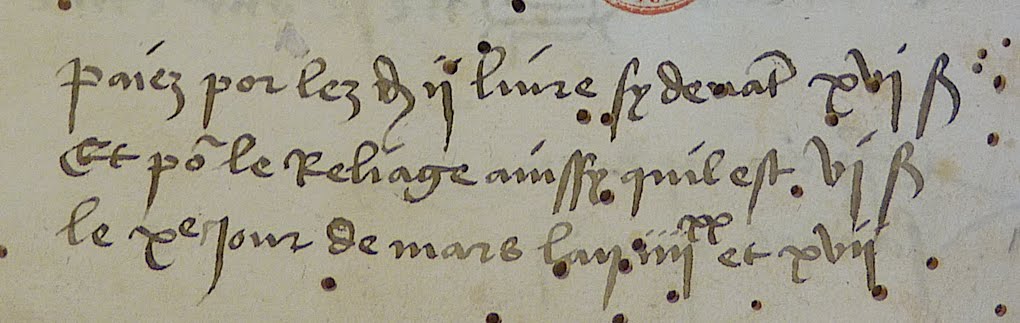 paiez por lez ij livre sy devat xvi s
Et po le Reliage ainssy quil est vi s
le xe jour de mars lan iiiixx et xvii